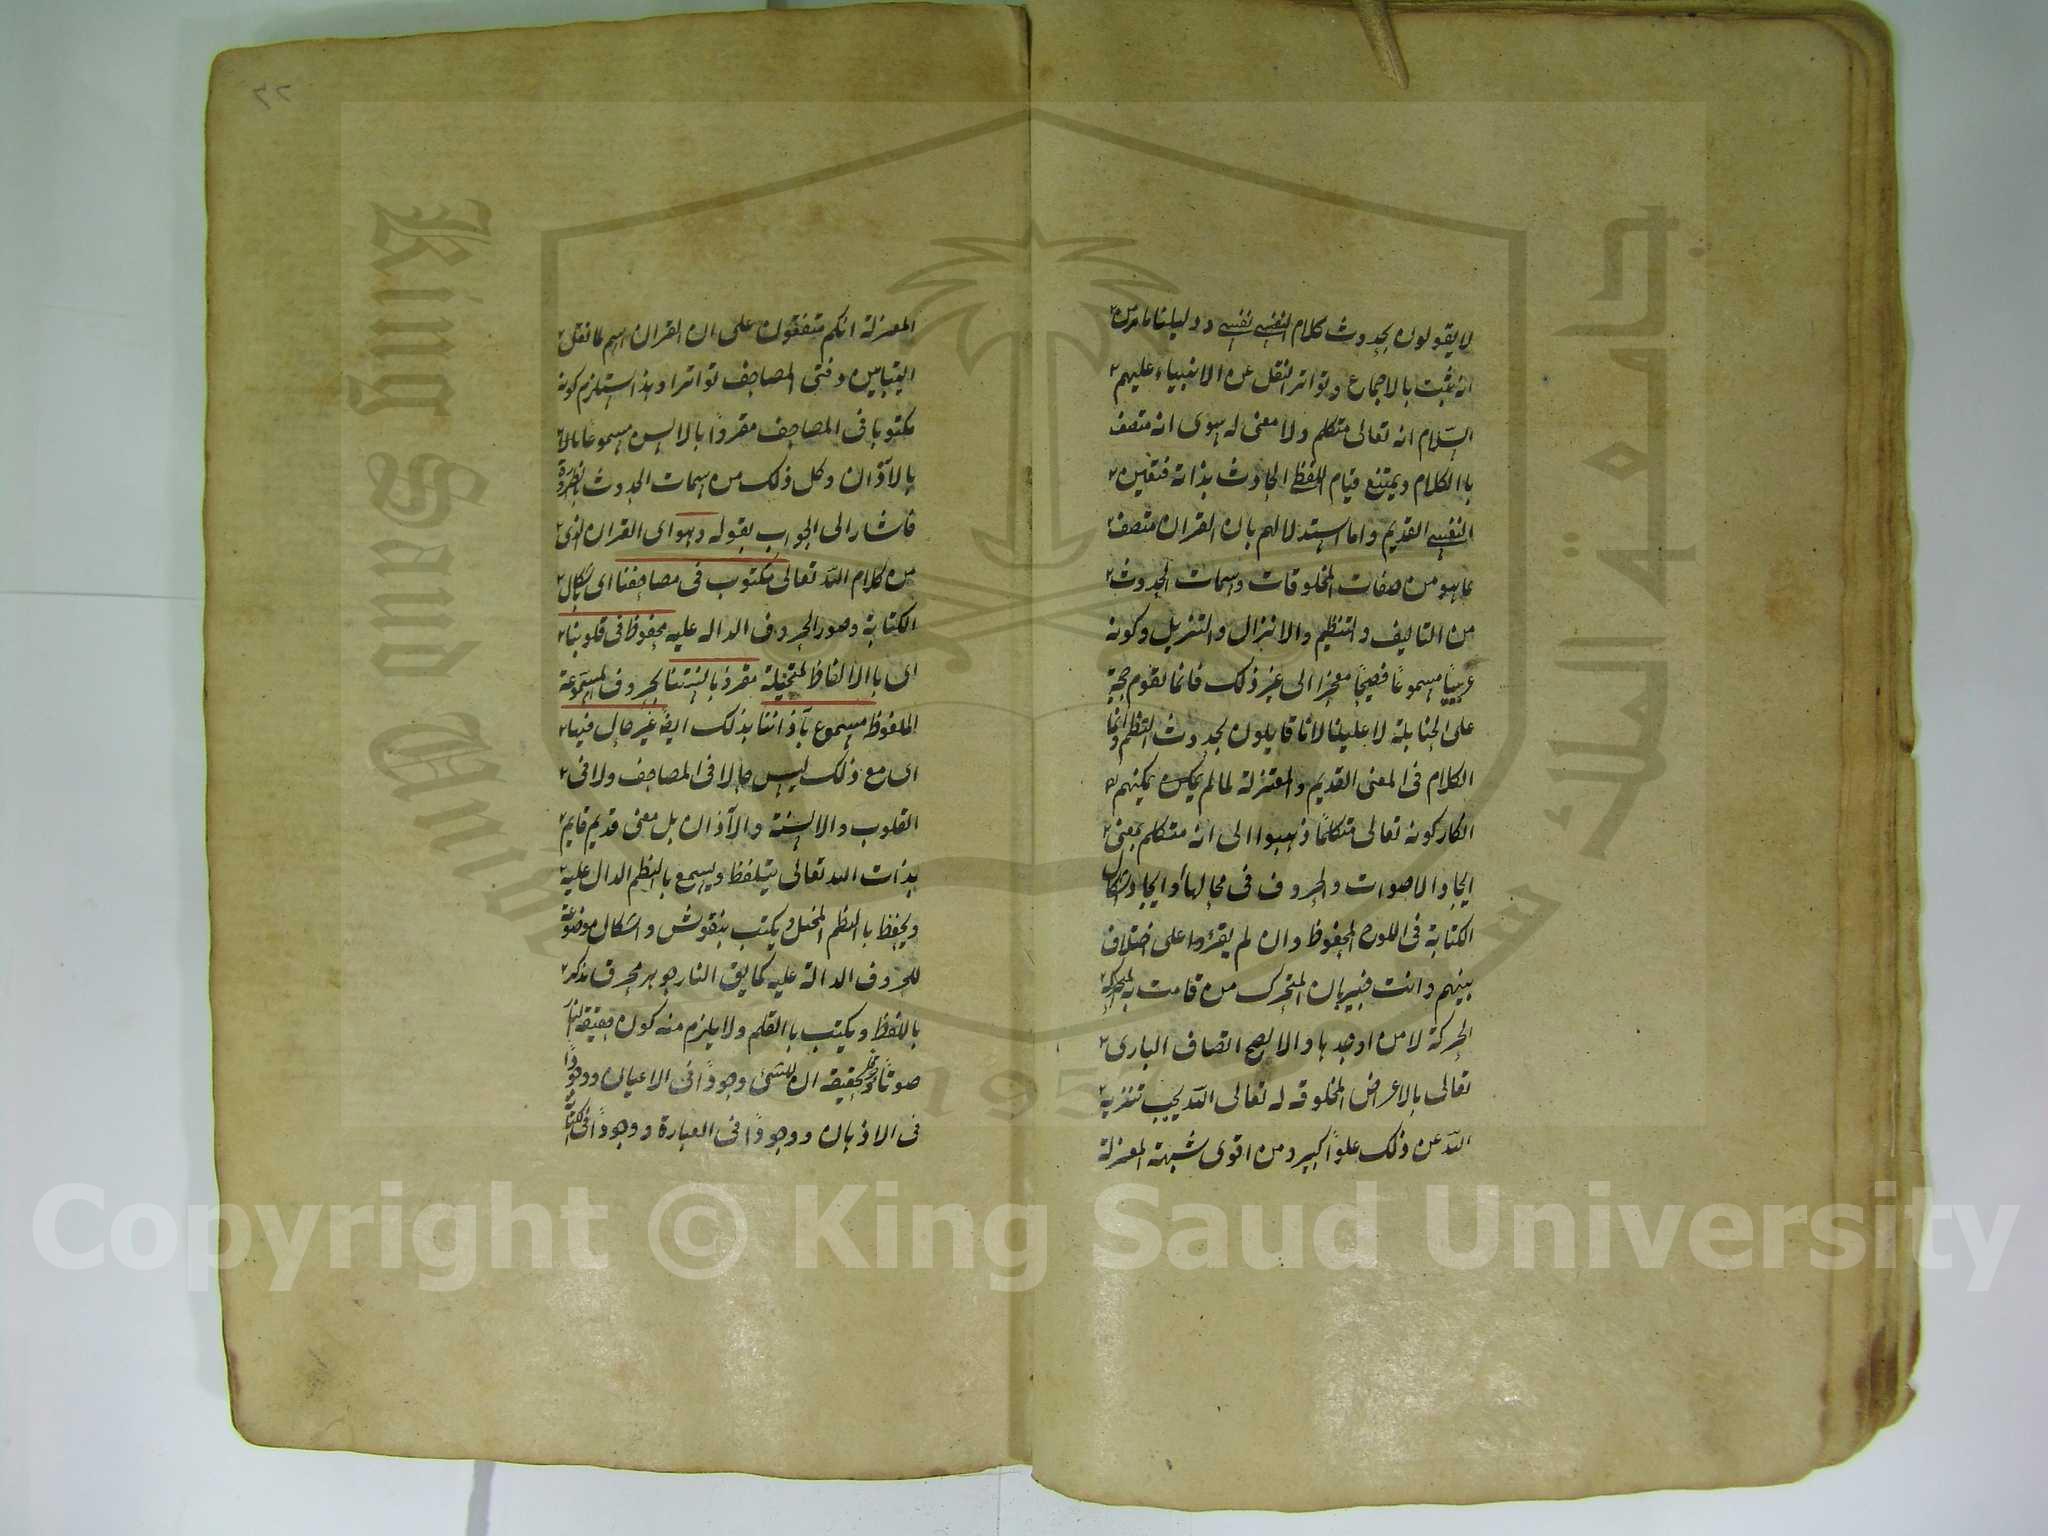 لا يقولون بحدوث كلام النفسي نفسي ودليلنا ما مر من
انه ثبت بالاجماع وتواتر النقل عن الانبياء عليهم
السلام انه تعالى متكلم ولا معنى له سوى انه متصف
باالكلام ويمتنع قيام اللفظ الحادث بذاته فتعين
النفسي القديم واما استدلالهم بان القران متصف
بما هو من صفات المخلوقات وسمات الحدوث
من التاليف والتنظيم والانزال والتنزيل وكونه
عربيا مسموعا فصيحا معجزا الى غير ذلك فانما تقوم حجة
على الحنابلة لا علينا لانا قايلون بحدوث النظم وانما
الكلام فى المعنى القديم والمعتزلة لما لم يمكن يمكنهم
انكار كونه تعالى متكلما ذهبوا الى انه متكلم بمعنى
ايجاد الاصوات والحروف فى محالها وايجاد اشكال
الكتابة فى اللوح المحفوظ وان لم يقرؤا على اختلاف
بينهم وانت خبير بان المتحرك من قامت به الحركة
الحركة لا من اوجدها والا لصح اتصاف البارى
تعالى بالاعراض المخلوقة له تعالى الله يجب تنزيه
الله عن ذلك علوا كبير ومن اقوى شبهة المعتزلة
٢٢
المعتزلة انكم متفقون على ان القران اسم لما نقل
الينا بين دفتى المصاحف تواترا وهذا استلزم كونه
مكتوبا فى المصاحف مقروا بالالسن مسموعا بالا
بالآذان وكل ذلك من سمات الحدوث بالضرورة
فاشار الى الجواب بقوله وهو اى القران الذى
من كلام الله تعالى مكتوب فى مصاحفنا اى باشكال
الكتابة وصور الحروف الداله عليه محفوظ فى قلوبنا
اى باالالفاظ المتخيلة مقرؤ بالسنتنا بحروف المسموعة
الملفوظ مسموع بآذاننا بذلك ايضا غير حال فيها
اى مع ذلك ليس حالا فى المصاحف ولا فى
القلوب والالسنة والآذان بل معنى قديم قايم
بذات الله تعالى يتلفظ ويسمع بالنظم الدال عليه
ويحفظ باالنظم المخيل ويكتب بنقوش واشكال موضوعة
للحروف الدالة عليه كما يق النار جوهر محرق يذكر
باللفظ ويكتب باالقلم ولا يلزم منه كون حقيقة النار
صوتا وحرفا وتحقيقه ان للشئ وجودا فى الاعيان ووجودا
فى الاذهان ووجودا فى العبارة ووجودا فى الكتابة
Copyright © King Saud University
جامعة الملك سعود
King Saud University
195